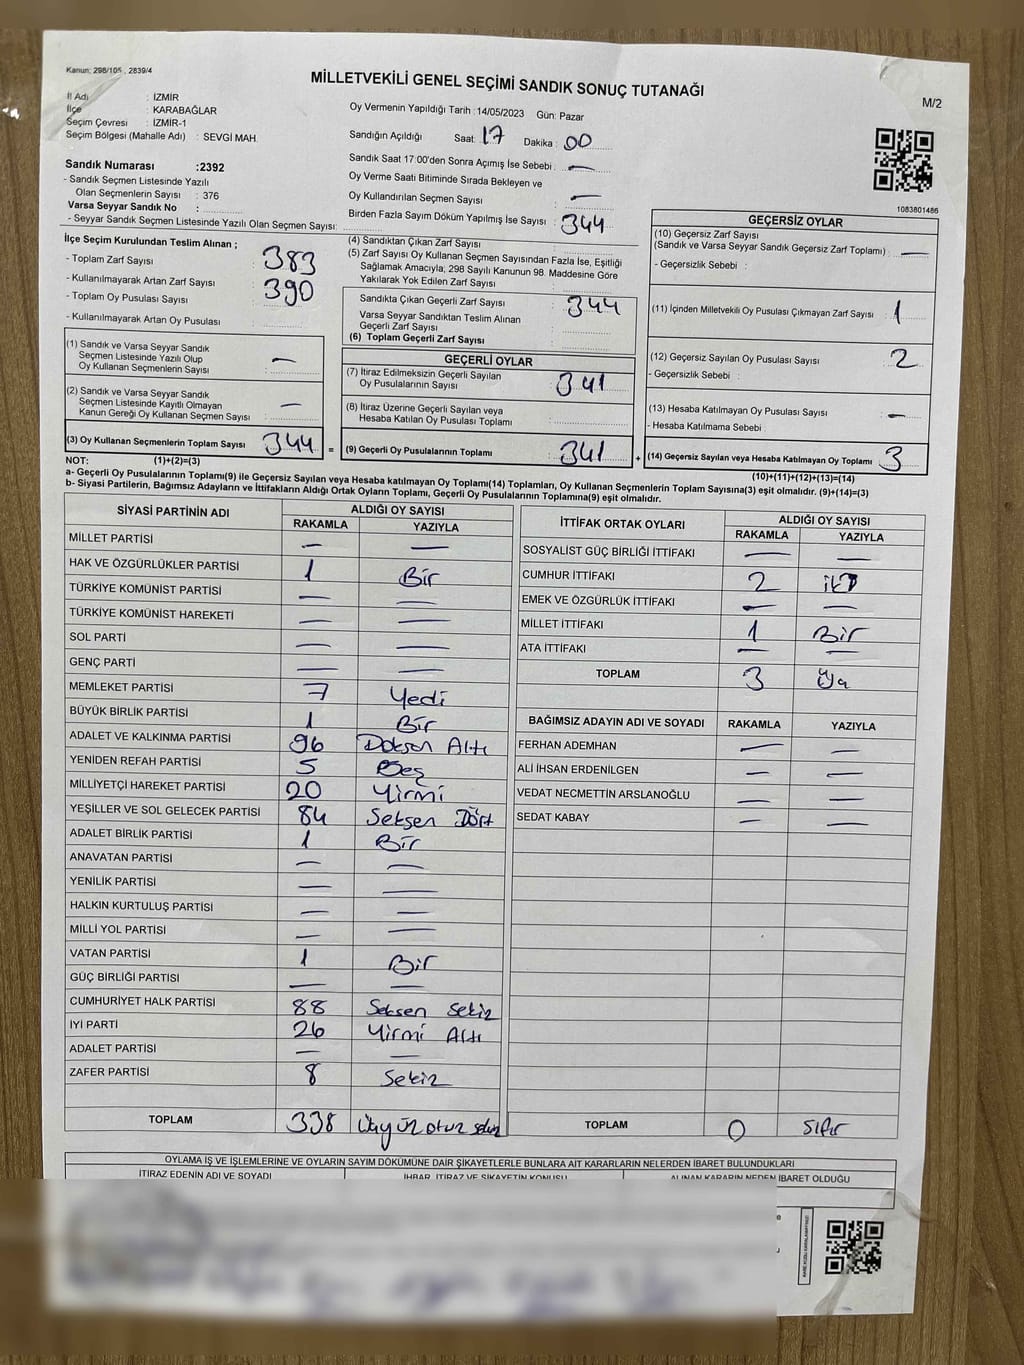 Kanun: 298/105 , 2839/4
MİLLETVEKİLİ GENEL SEÇİMİ SANDIK SONUÇ TUTANAĞI
M/2
İl Adı : İZMİR
İlçe : KARABAĞLAR
Seçim Çevresi : İZMİR-1
Seçim Bölgesi (Mahalle Adı) : SEVGİ MAH.
Sandık Numarası :2392
- Sandık Seçmen Listesinde Yazılı
Olan Seçmenlerin Sayısı : 376
Varsa Seyyar Sandık No :
- Seyyar Sandık Seçmen Listesinde Yazılı Olan Seçmen Sayısı:
Oy Vermenin Yapıldığı Tarih : 14/05/2023 Gün: Pazar
Sandığın Açıldığı Saat: 17 Dakika : 00
Sandık Saat 17:00'den Sonra Açımış İse Sebebi : —
Oy Verme Saati Bitiminde Sırada Bekleyen ve
Oy Kullandırılan Seçmen Sayısı : —
Birden Fazla Sayım Döküm Yapılmış İse Sayısı : 344
1083801486
İlçe Seçim Kurulundan Teslim Alınan ;
- Toplam Zarf Sayısı : 383
- Kullanılmayarak Artan Zarf Sayısı : 390
- Toplam Oy Pusulası Sayısı :
- Kullanılmayarak Artan Oy Pusulası :
(1) Sandık ve Varsa Seyyar Sandık
Seçmen Listesinde Yazılı Olup
Oy Kullanan Seçmenlerin Sayısı : —
(2) Sandık ve Varsa Seyyar Sandık
Seçmen Listesinde Kayıtlı Olmayan
Kanun Gereği Oy Kullanan Seçmen Sayısı : —
(3) Oy Kullanan Seçmenlerin Toplam Sayısı : 344 =
(4) Sandıktan Çıkan Zarf Sayısı :
(5) Zarf Sayısı Oy Kullanan Seçmen Sayısından Fazla İse, Eşitliği
Sağlamak Amacıyla; 298 Sayılı Kanunun 98. Maddesine Göre
Yakılarak Yok Edilen Zarf Sayısı :
Sandıkta Çıkan Geçerli Zarf Sayısı : 344
Varsa Seyyar Sandıktan Teslim Alınan
Geçerli Zarf Sayısı :
(6) Toplam Geçerli Zarf Sayısı :
GEÇERLİ OYLAR
(7) İtiraz Edilmeksizin Geçerli Sayılan
Oy Pusulalarının Sayısı : 341
(8) İtiraz Üzerine Geçerli Sayılan veya
Hesaba Katılan Oy Pusulası Toplamı :
(9) Geçerli Oy Pusulalarının Toplamı : 341 +
GEÇERSİZ OYLAR
(10) Geçersiz Zarf Sayısı
(Sandık ve Varsa Seyyar Sandık Geçersiz Zarf Toplamı) : —
- Geçersizlik Sebebi :
(11) İçinden Milletvekili Oy Pusulası Çıkmayan Zarf Sayısı : 1
(12) Geçersiz Sayılan Oy Pusulası Sayısı : 2
- Geçersizlik Sebebi :
(13) Hesaba Katılmayan Oy Pusulası Sayısı : —
- Hesaba Katılmama Sebebi :
(14) Geçersiz Sayılan veya Hesaba Katılmayan Oy Toplamı : 3
NOT: (1)+(2)=(3)
(10)+(11)+(12)+(13)=(14)
a- Geçerli Oy Pusulalarının Toplamı(9) ile Geçersiz Sayılan veya Hesaba katılmayan Oy Toplamı(14) Toplamları, Oy Kullanan Seçmenlerin Toplam Sayısına(3) eşit olmalıdır. (9)+(14)=(3)
b- Siyasi Partilerin, Bağımsız Adayların ve İttifakların Aldığı Ortak Oyların Toplamı, Geçerli Oy Pusulalarının Toplamına(9) eşit olmalıdır.
SİYASİ PARTİNİN ADI ALDIĞI OY SAYISI
RAKAMLA YAZIYLA
MİLLET PARTİSİ — —
HAK VE ÖZGÜRLÜKLER PARTİSİ 1 Bir
TÜRKİYE KOMÜNİST PARTİSİ — —
TÜRKİYE KOMÜNİST HAREKETİ — —
SOL PARTİ — —
GENÇ PARTİ — —
MEMLEKET PARTİSİ 7 Yedi
BÜYÜK BİRLİK PARTİSİ 1 Bir
ADALET VE KALKINMA PARTİSİ 96 Doksan Altı
YENİDEN REFAH PARTİSİ 5 Beş
MİLLİYETÇİ HAREKET PARTİSİ 20 Yirmi
YEŞİLLER VE SOL GELECEK PARTİSİ 84 Seksen Dört
ADALET BİRLİK PARTİSİ 1 Bir
ANAVATAN PARTİSİ — —
YENİLİK PARTİSİ — —
HALKIN KURTULUŞ PARTİSİ — —
MİLLİ YOL PARTİSİ — —
VATAN PARTİSİ 1 Bir
GÜÇ BİRLİĞİ PARTİSİ — —
CUMHURİYET HALK PARTİSİ 88 Seksen Sekiz
İYİ PARTİ 26 Yirmi Altı
ADALET PARTİSİ — —
ZAFER PARTİSİ 8 Sekiz
TOPLAM 338 Üçyüz otuz sekiz
İTTİFAK ORTAK OYLARI ALDIĞI OY SAYISI
RAKAMLA YAZIYLA
SOSYALİST GÜÇ BİRLİĞİ İTTİFAKI — —
CUMHUR İTTİFAKI 2 iki
EMEK VE ÖZGÜRLÜK İTTİFAKI — —
MİLLET İTTİFAKI 1 Bir
ATA İTTİFAKI — —
TOPLAM 3 Üç
BAĞIMSIZ ADAYIN ADI VE SOYADI RAKAMLA YAZIYLA
FERHAN ADEMHAN — —
ALİ İHSAN ERDENİLGEN — —
VEDAT NECMETTİN ARSLANOĞLU — —
SEDAT KABAY — —
TOPLAM 0 Sıfır
OYLAMA İŞ VE İŞLEMLERİNE VE OYLARIN SAYIM DÖKÜMÜNE DAİR ŞİKAYETLERLE BUNLARA AİT KARARLARIN NELERDEN İBARET BULUNDUKLARI
İTİRAZ EDENİN ADI VE SOYADI İHBAR, İTİRAZ VE ŞİKAYETİN KONUSU ALINAN KARARIN NEDEN İBARET OLDUĞU